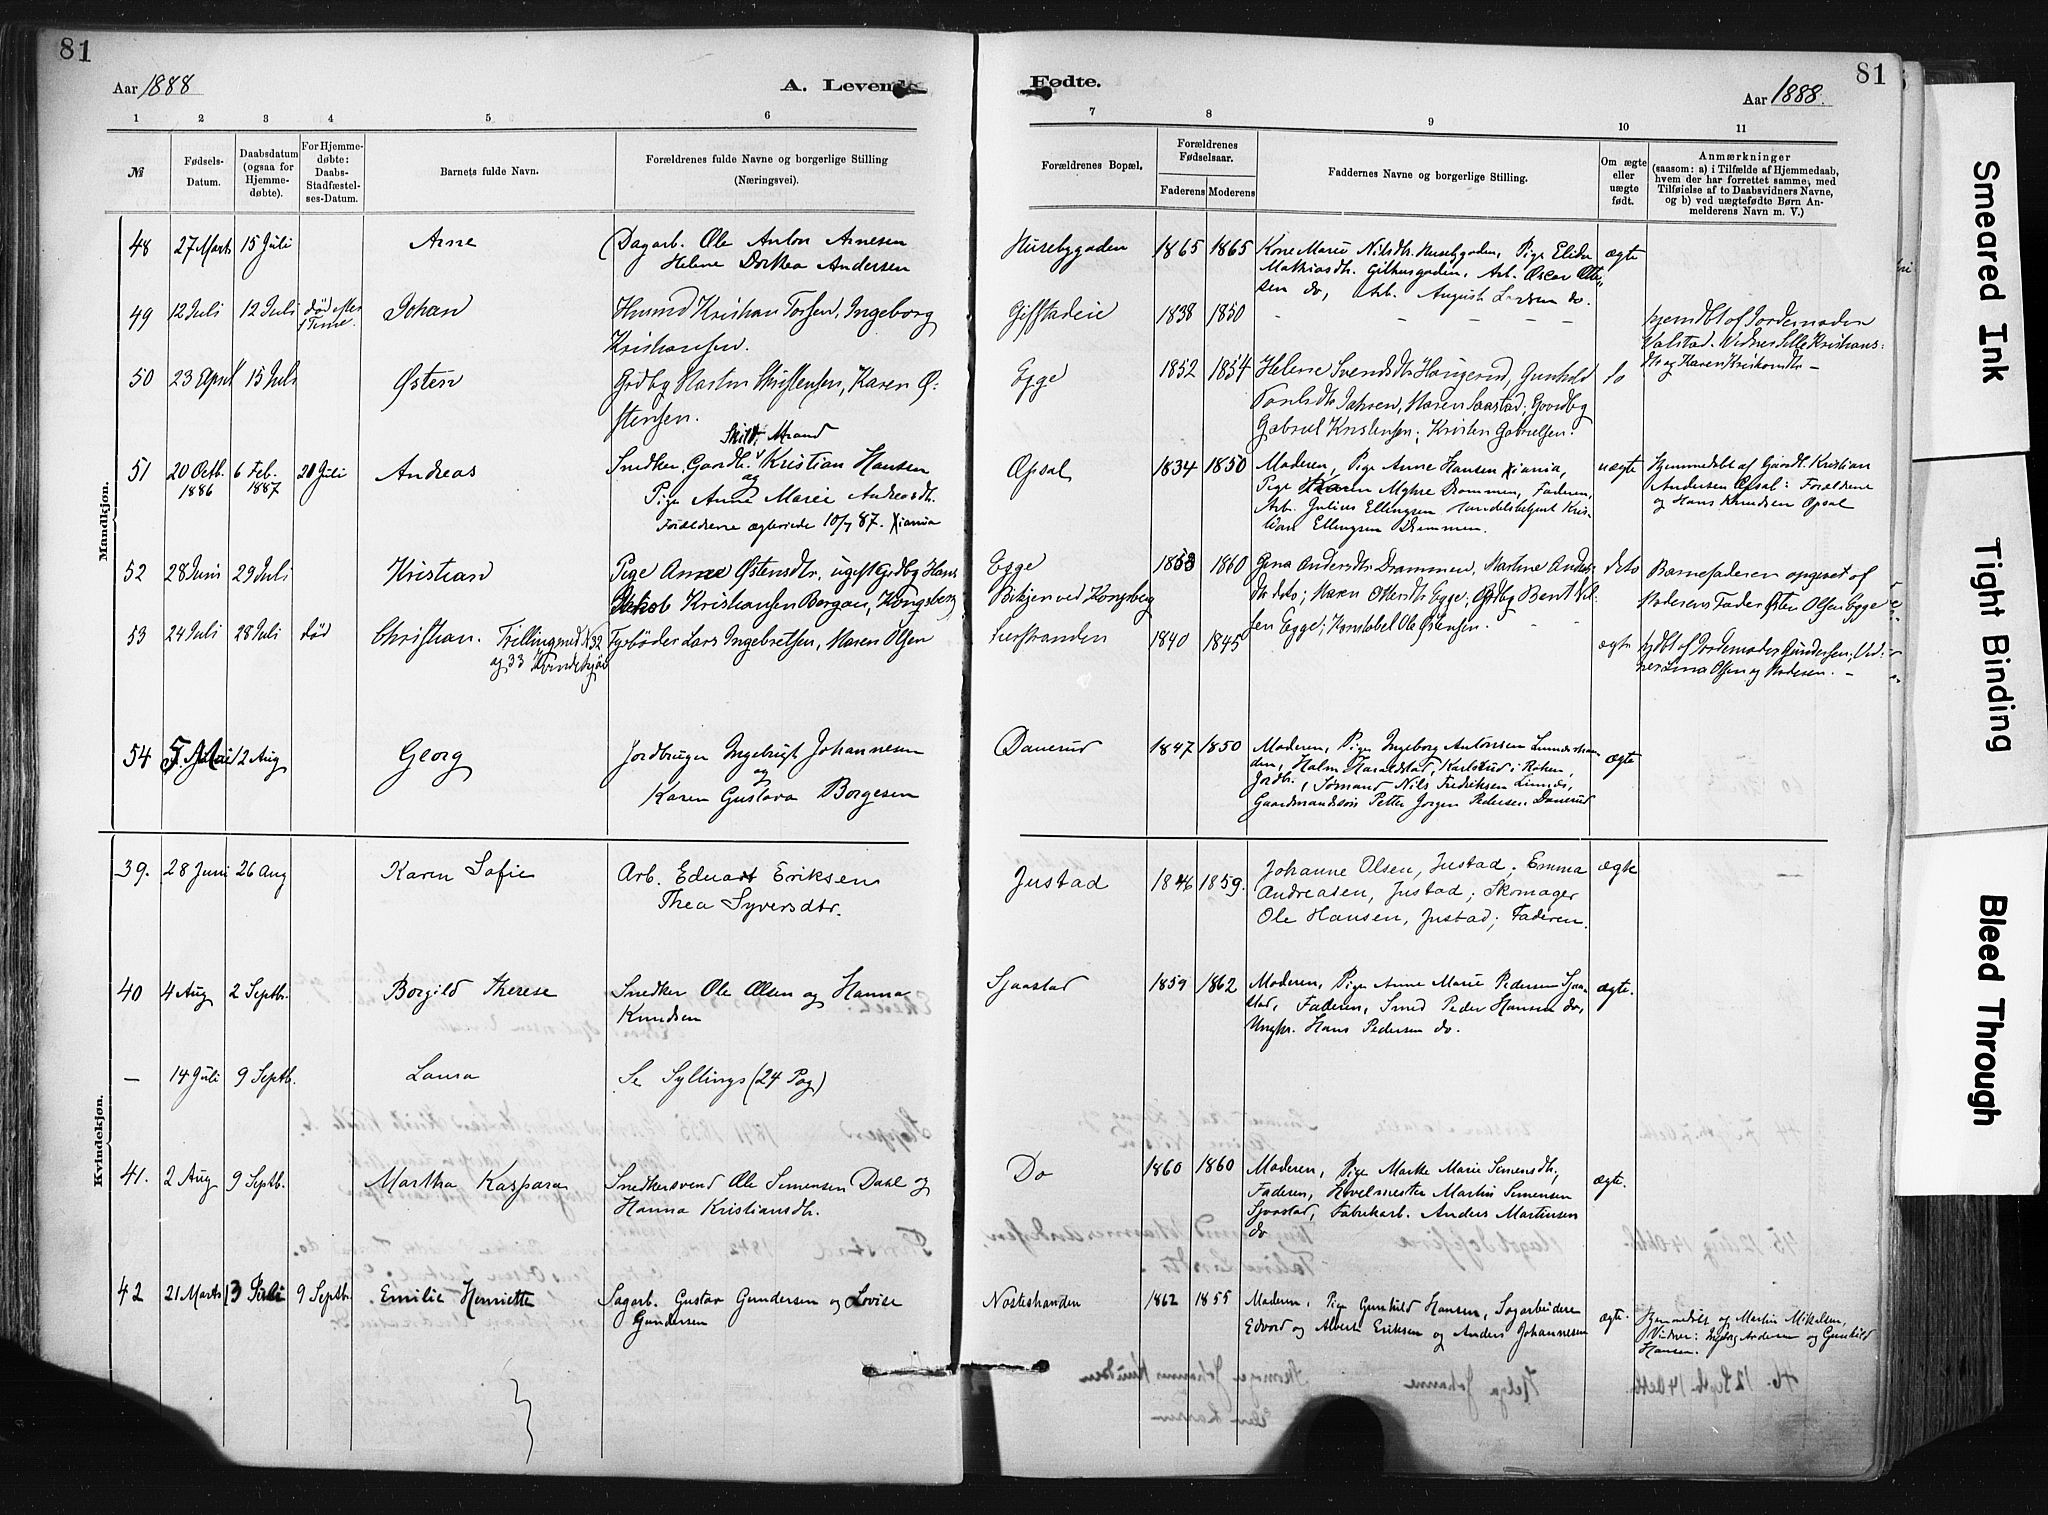 81
Aar 1888
A. Levende
1 2 3 4 5 6
№
Fødsels-Datum.
Daabsdatum (ogsaa for Hjemmedøbte).
For Hjemmedøbte: Daabs-Stadfæstelses-Datum.
Barnets fulde Navn.
Forældrenes fulde Navne og borgerlige Stilling (Næringsvei).
Fødte.
81
Aar 1888.
7 8 9 10 11
Forældrenes Bopæl.
Forældrenes Fødselsaar.
Faderens Moderens
Faddernes Navne og borgerlige Stilling.
Om ægte eller uægte født.
Anmærkninger
(saasom: a) i Tilfælde af Hjemmedaab,
hvem der har forrettet samme, med
Tilføielse af to Daabsvidners Navne,
og b) ved uægtefødte Børn Anmelderens Navn m. V.)
Mandkjøn.
48 27 Marts 15 Juli Arne Dagarb. Ole Anton Arnesen
Helene Dorthea Andersen
Husebygaden 1865 1865 Kone Marie Nilsdtr. Husebygaden, Pige Elider ægte
Mathiasdtr. Gilhusgaden, Arb. Oscar Otte-
sen do, Arb. August Larsen do.
49 12 Juli 12 Juli død efter 1 Time Johan Husmd Kristian Torsen, Ingeborg
Kristiansen.
Gifstadeie 1838 1850 - - - - -
hjemdbt af Jordemoderen
Valstad. Vidner Sille Kristians-
dtr og Karen Kristiansdtr -
50 23 April 15 Juli Østen Grdbg Martin Christensen, Karen Ø-
stensen.
Egge 1852 1854 Helene Svendsdtr Haugerud, Gunhild to
Jahren, Maren Saastad; Gaardbg
Gabriel Kristensen; Kristen Gabrielsen.
51 20 Octb. 1886 6 Feb. 1887 21 Juli Andreas Skilt. Mand
Snedker, Gaardb. Kristian Hansen
og
Pige Anne Marie Andreasdtr.
Forældrene ægteviede 10/7 87. Xiania
Opsal 1834 1850 Moderen, Pige Anne Hansen Xiania, uægte
Pige Karen Myhre Drammen, Faderen,
Arb. Julius Ellingsen Handelsbetjent Kris-
tian Ellingsen Drammen.
Hjemmedøbt af Gaardb. Kristian
Andersen Opsal: Forældrene
og Hans Knudsen Opsal
52 28 Juni 29 Juli Kristian Pige Anne Østensdtr, ugift Grdbg Hans
Jakob Kristiansen Borgan, Kongsberg
Egge
ved Kongsberg
1858 1860 Gina Andersdtr Drammen, Martine Anders- dets
dtr dets; Maren Ottersdtr Egge; Grdbg Bent Nil-
sen Egge; Konstabel Ole Østensen.
Barnefaderen opgivet af
Moderens Fader Østen Olsen Egge
53 24 Juli 28 Juli død Christian. Trillingmed. N 32
og 33 Kvindekjøn
Fyrbøder Lars Ingebretsen, Maren Olsen
Lierstranden 1840 1845 - - ægte
hjdbt af Jordemoder Gundersen, Vid-
ner Lina Olsen og Madsen. -
54 5. Mai 12 Aug Georg Jordbruger Ingebrigt Johannesen
og
Karen Gustava Borgesen
Danerud 1847 1850 Moderen, Pige Ingeborg Antonsen ægte
Haraldstad, Karlsrud i Roken,
Jordbr., Sømand Nils Fredriksen Linnes,
Gaardmandssøn Petter Jørgen Pedersen Danerud
Kvindekjøn.
39. 28 Juni 26 Aug Karen Sofie Arb. Eduart Eriksen
Thea Syversdtr.
Justad 1846 1859. Johanne Olsen, Justad; Emma ægte
Andreasen, Justad; Skomager
Ole Hansen, Justad; Faderen.
40 4 Aug 2 Septbr. Borgild Therese Snedker Ole Olsen og Hanna
Knudsen
Sjaastad 1859 1862 Moderen, Pige Anne Marie Pedersen Sjaa- ægte.
stad, Faderen, Smed Peder Hansen do,
Ungkr. Hans Pedersen do.
— 14 Juli 9 Septb. Laura Se Syllings (24 Pag)
41. 2 Aug 9 Septb. Martha Kaspara Snedkersvend Ole Simensen Dahl og
Hanna Kristiansdtr.
Do 1860 1860 Moderen, Pige Marthe Marie Simensdtr, ægte.
Faderen, Martin Simensen
Sjaastad, Fabrikarb. Anders Martinsen
do
42 21 Marts 13 Juli 9 Septb. Emilie Henriette Sagarb. Gustav Gundersen og Lovise
Gundersen
Nøstestranden 1862 1855 Moderen, Pige Gunhild Hansen, Sagarbeidere ægte.
Edvard og Albert Eriksen og Anders Johannesen
Hjemmedøbt og Martin Mikelsen,
Vidner: Ingborg Andersen og Gunhild
Hansen.
Smeared Ink
Tight Binding
Bleed Through